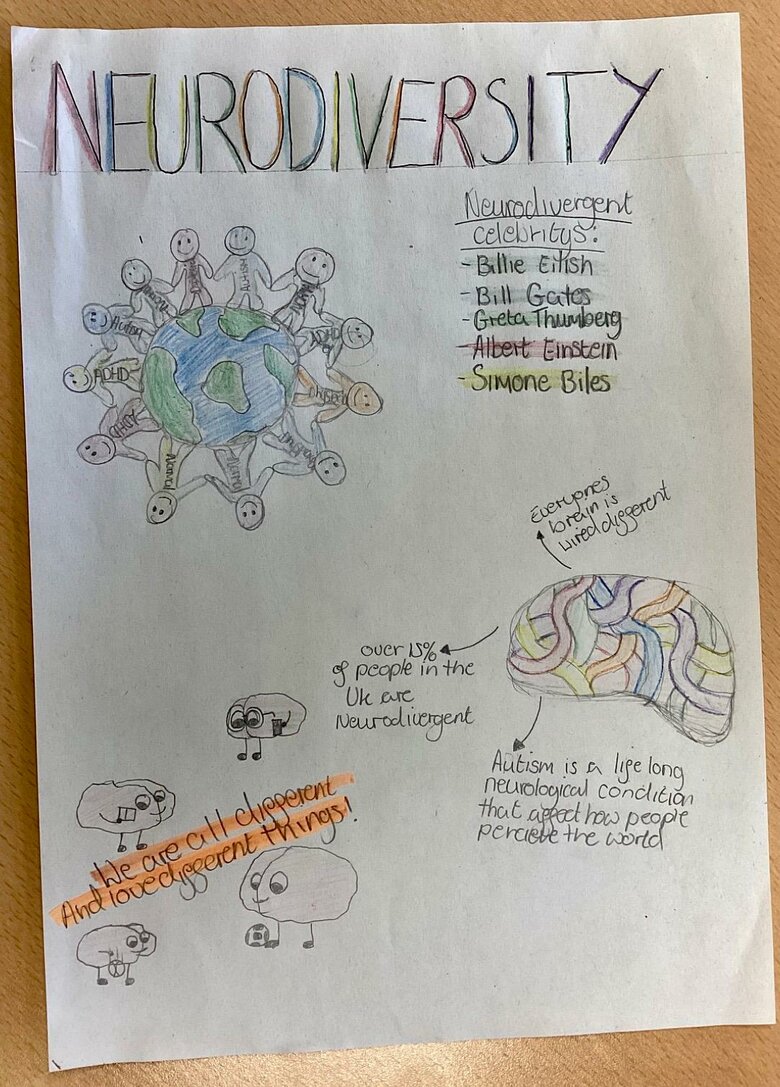 NEURODIVERSITY
Neurodivergent
celebritys:
- Billie Eilish
- Bill Gates
- Greta Thumberg
- Albert Einstein
- Simone Biles
Autism
Autism
ADHD
ADHD
ADHD
Everyones
brain is
wired different
over 15%
of people in the
Uk are
Neurodivergent
Autism is a life long
neurological condition
that affect how people
percieve the world
We are all different
And love different things!